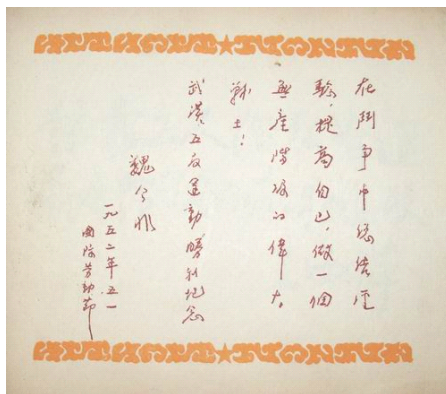 在鬥爭中總結經
驗，提高自己，做一個
無產階級的偉大
戰士！
武漢五反運動勝利紀念
魏今非
一九五二年五一
國際勞動節